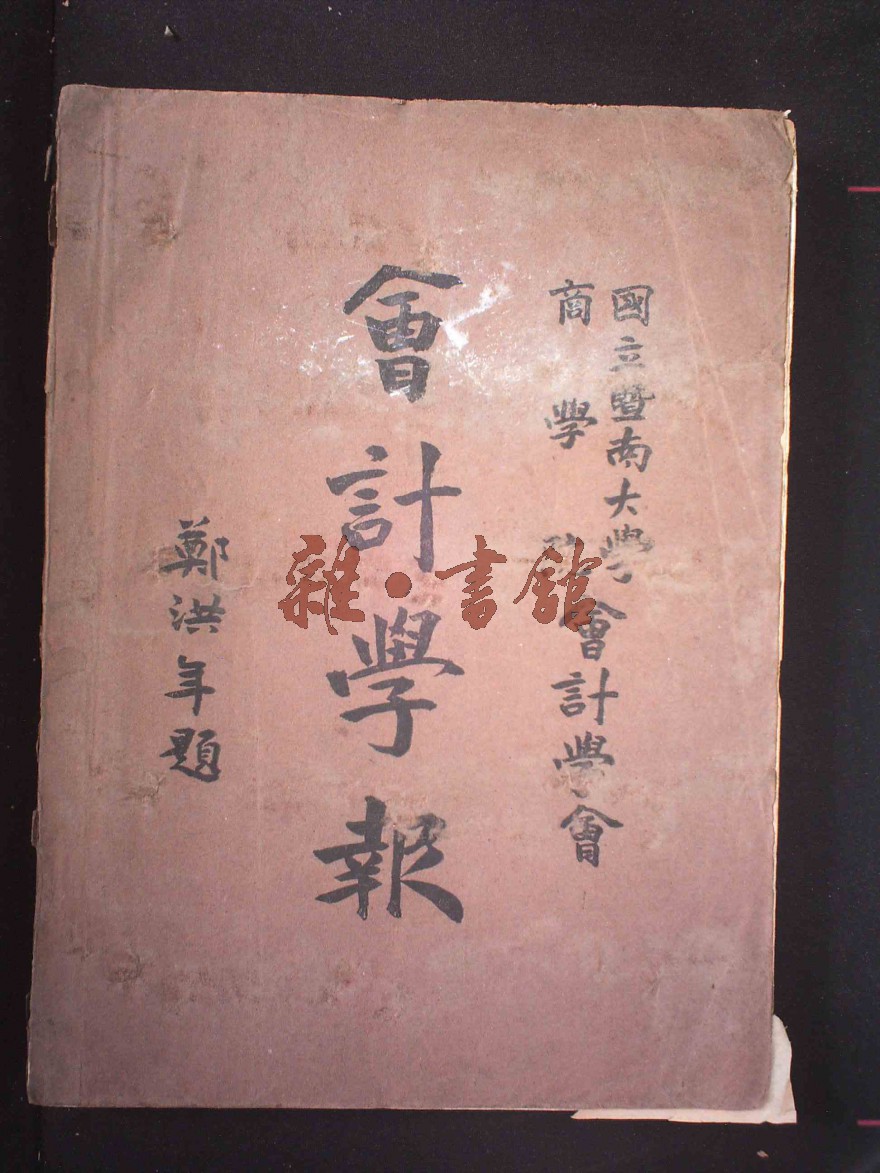 國立暨南大學
商學院
會計學會
會計學報
鄭洪年題
雜·書館